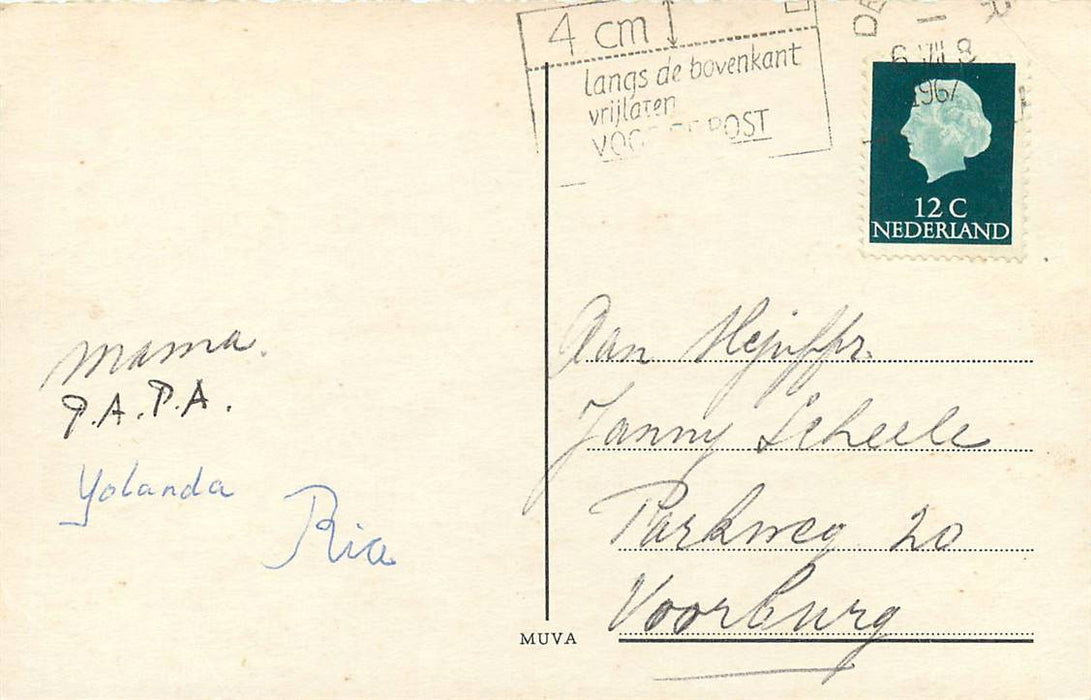 4 cm
langs de bovenkant
vrijlaten
VOOR DE POST
DE
6 VII 8
1967
12 C
NEDERLAND
Mama.
P.A.P.A.
Yolanda
Ria
Aan Mejuffr.
Janny Scheele
Parkweg 20
Voorburg
MUVA